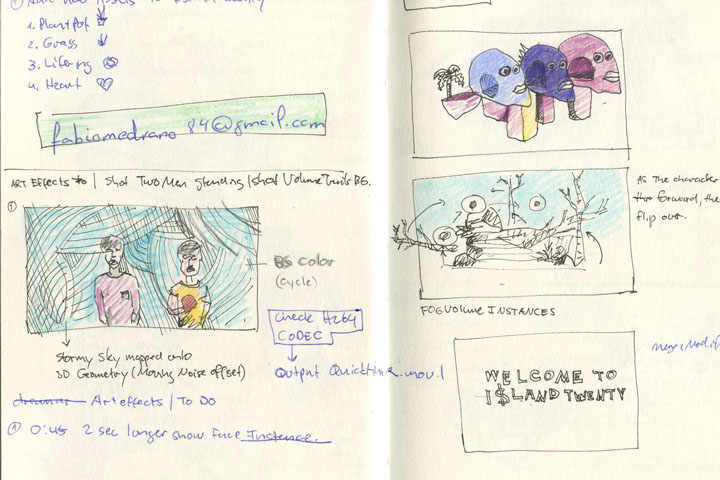 1. Plant Pot
2. Grass
3. Lifering
4. Heart
fabiomedrano 84@gmail.com
ART Effects to | Shot Two Men Standing | Shot Volume Trails BG.
1
BG color
(cycle)
Check H264
CODEC
Stormy Sky mapped onto
3D Geometry (Moving Noise offset)
Output Quicktime.mov.1
Art effects | To Do
1 0:45 2 sec longer show Face Instance.
AS The character
forward, the
flip over.
FOGVolume INSTANCES
WELCOME TO
I$LAND TWENTY